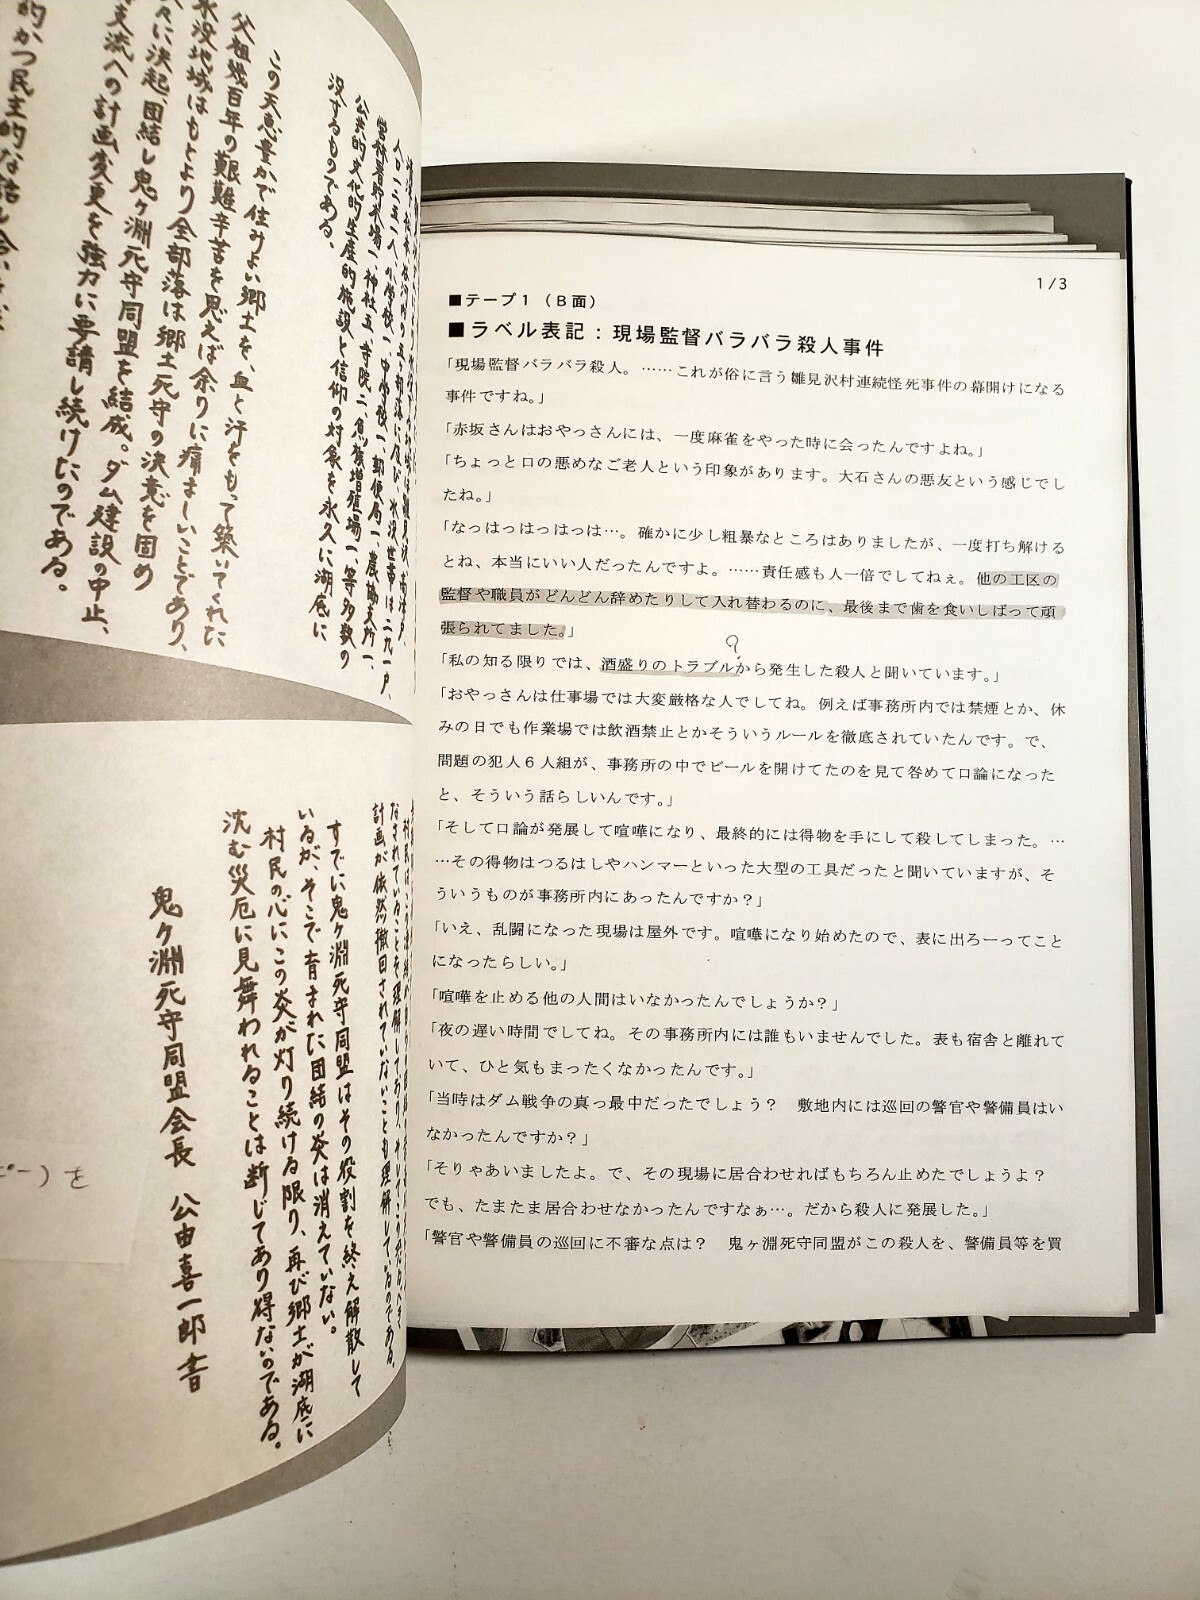 この天恵豊かで住みよい郷土を、血と汗をもって築いてくれた
父祖幾百年の艱難辛苦を思えば余りに痛ましいことであり、
水没地域はもとより全部落は郷土死守の決意を固め
々に決起、団結し鬼ヶ淵死守同盟を結成。ダム建設の中止、
支流への計画変更を強力に要請し続けたのである。
的かつ民主的な話し合い
人口一二五一人、小学校一、中学校一、郵便局一、農協支所一、
営林署貯木場一、神社五、寺院二、魚族増殖場一、等多数の
公共的文化的生産的施設と信仰の対象を永久に湖底に
没するものである。
計画が依然撤回されていないことも理解しているのである。
すでに鬼ヶ淵死守同盟はその役割を終え解散して
いるが、そこで育まれた団結の炎は消えていない。
村民の心にこの炎が灯り続ける限り、再び郷土が湖底に
沈む災厄に見舞われることは断じてあり得ないのである。
鬼ヶ淵死守同盟会長 公由喜一郎 書
ピー)を
1/3
■テープ1（B面）
■ラベル表記：現場監督バラバラ殺人事件
「現場監督バラバラ殺人。……これが俗に言う雛見沢村連続怪死事件の幕開けになる
事件ですね。」
「赤坂さんはおやっさんには、一度麻雀をやった時に会ったんですよね。」
「ちょっと口の悪めなご老人という印象があります。大石さんの悪友という感じでし
たね。」
「なっはっはっはっは…。確かに少し粗暴なところはありましたが、一度打ち解ける
とね、本当にいい人だったんですよ。……責任感も人一倍でしてねぇ。他の工区の
監督や職員がどんどん辞めたりして入れ替わるのに、最後まで歯を食いしばって頑
張られてました。」
?
「私の知る限りでは、酒盛りのトラブルから発生した殺人と聞いています。」
「おやっさんは仕事場では大変厳格な人でしてね。例えば事務所内では禁煙とか、休
みの日でも作業場では飲酒禁止とかそういうルールを徹底されていたんです。で、
問題の犯人６人組が、事務所の中でビールを開けてたのを見て咎めて口論になった
と、そういう話らしいんです。」
「そして口論が発展して喧嘩になり、最終的には得物を手にして殺してしまった。…
…その得物はつるはしやハンマーといった大型の工具だったと聞いていますが、そ
ういうものが事務所内にあったんですか？」
「いえ、乱闘になった現場は屋外です。喧嘩になり始めたので、表に出ろーってこと
になったらしい。」
「喧嘩を止める他の人間はいなかったんでしょうか？」
「夜の遅い時間でしてね。その事務所内には誰もいませんでした。表も宿舎と離れて
いて、ひと気もまったくなかったんです。」
「当時はダム戦争の真っ最中だったでしょう？　敷地内には巡回の警官や警備員はい
なかったんですか？」
「そりゃあいましたよ。で、その現場に居合わせればもちろん止めたでしょうよ？
でも、たまたま居合わせなかったんですなぁ…。だから殺人に発展した。」
「警官や警備員の巡回に不審な点は？　鬼ヶ淵死守同盟がこの殺人を、警備員等を買